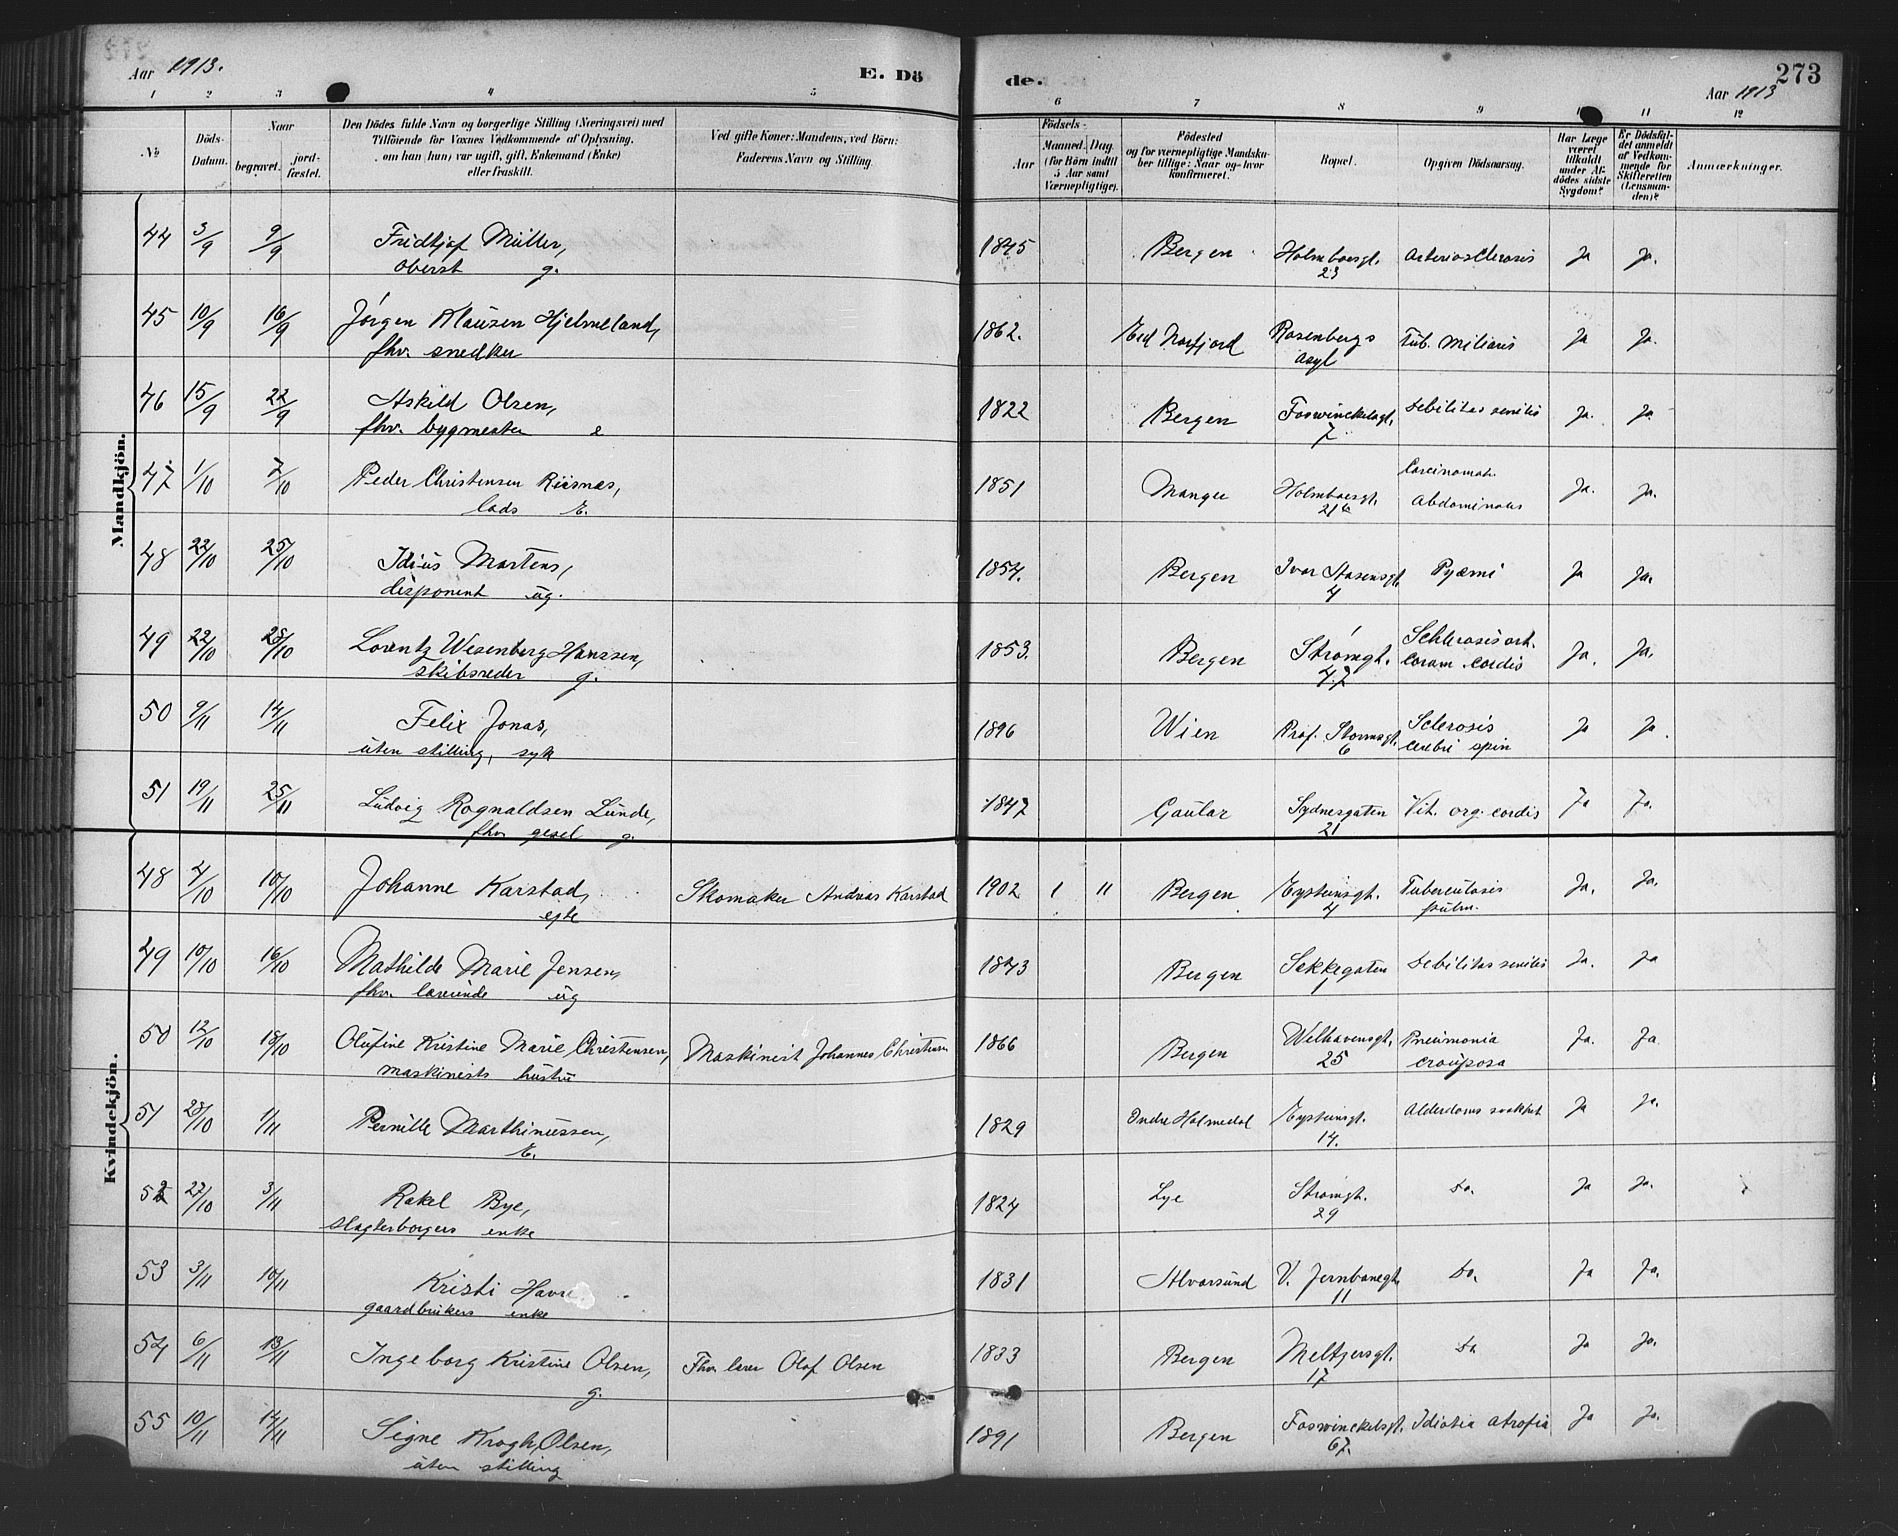 Aar 1913. E. Dö de. Aar 1913 273
1 2 3 4 5 6 7 8 9 11 12
No. Döds-Datum. Naar begravet. jord-fæstet. Den Dödes fulde Navn og borgerlige Stilling (Næringsvei) med Tilföiende for Voxnes Vedkommende af Oplysning, om han (hun) var ugift, gift, Enkemand (Enke) eller fraskilt. Ved gifte Koner: Mandens, ved Börn: Faderens Navn og Stilling. Födsels- Aar Maaned. Dag. (for Börn indtil 5 Aar samt Værnepligtige). Födested og for værnepligtige Mandskaber tillige: Naar og hvor konfirmeret. Bopæl. Opgiven Dödsaarsag. Har Læge været tilkaldt under Afdödes sidste Sygdom? Er Dödsfaldet anmeldt af Vedkommende for Skifteretten (Lensmanden)? Anmærkninger.
Mandkjön.
44 3/9 9/9 Fridtjof Müller, 1845 Bergen Holmboesgt. Arteriosclerosis Ja Ja.
oberst g. 23
45 10/9 16/9 Jörgen Klausen Hjelmeland, 1862. Eid Norfjord Rosenbergs Tub. miliaris Ja Ja.
fhv. snedker asyl
46 15/9 22/9 Askild Olsen, 1822 Bergen Foswinckelsgt. Debilitas senilis Ja. Ja
fhv. bygmester e 7
47 1/10 7/10 Peder Christensen Riisnes, 1851 Manger Holmboesgt. Carcinomat. Ja. Ja.
lods E. 21 Abdominales
48 22/10 25/10 Idius Martens, 1854. Bergen Ivar Aasensgt. Pyæmi Ja Ja.
disponent ug. 4
49 22/10 28/10 Lorentz Wesenberg Hanssen, 1853. Bergen Strömgt. Schlerosis art. Ja. Ja.
skibsreder g. 47 coram cordis
50 9/11 14/11 Felix Jonas, 1896 Wien Prof. Stormsgt. Sclerosis Ja Ja.
uten stilling, syk 6 cerebri spin
51 19/11 25/11 Ludvig Rognaldsen Lunde, 1847 Gaular Sydnesgaten Vit. org. cordis Ja Ja.
fhv. gesel g. 21
Kvindekjön.
48 4/10 10/10 Johanne Karstad, Skomaker Andreas Karstad 1902 1 11 Bergen Eysteinsgt. Tuberculosis Ja. Ja.
egte 4 pulm.
49 10/10 16/10 Mathilde Marie Jensen, 1843 Bergen Sekkegaten Debilitas senilis Ja. Ja
fhv. lærerinde ug 1
50 12/10 18/10 Olufine Kristine Marie Christensen, Maskinist Johannes Christensen 1866 Bergen Welhavensgt. Pneumonia Ja. Ja
maskinists hustru 25 crouposa
51 28/10 1/11 Pernille Marthinussen, 1829 Indre Holmedal Eysteinsgt. Alderdoms svakhet Ja Ja.
E. 14.
52 27/10 3/11 Rakel Bye, 1824 Lye Strömgt. Do. Ja Ja.
slagterborgers enke 29
53 3/11 10/11 Kristi Havre 1831 Alvorsund V. Jernbanegt. Do. Ja Ja.
gaardbrukers enke 11
54 6/11 13/11 Ingeborg Kristine Olsen, Fhv. lærer Olaf Olsen 1833 Bergen Meltzersgt. Do Ja Ja.
g. 17
55 10/11 14/11 Signe Krogh Olsen, 1891 Bergen Foswinckelsgt. Idiotia atrofia Ja Ja.
uten stilling 67.